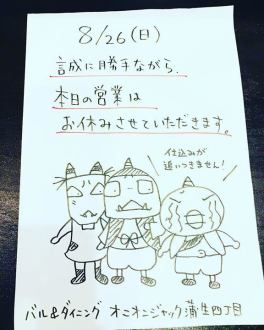 8/26(日)
誠に勝手ながら、
本日の営業は
お休みさせていただきます。
仕込みが
追いつきません!
バル&ダイニング オニオンジャック 蒲生四丁目